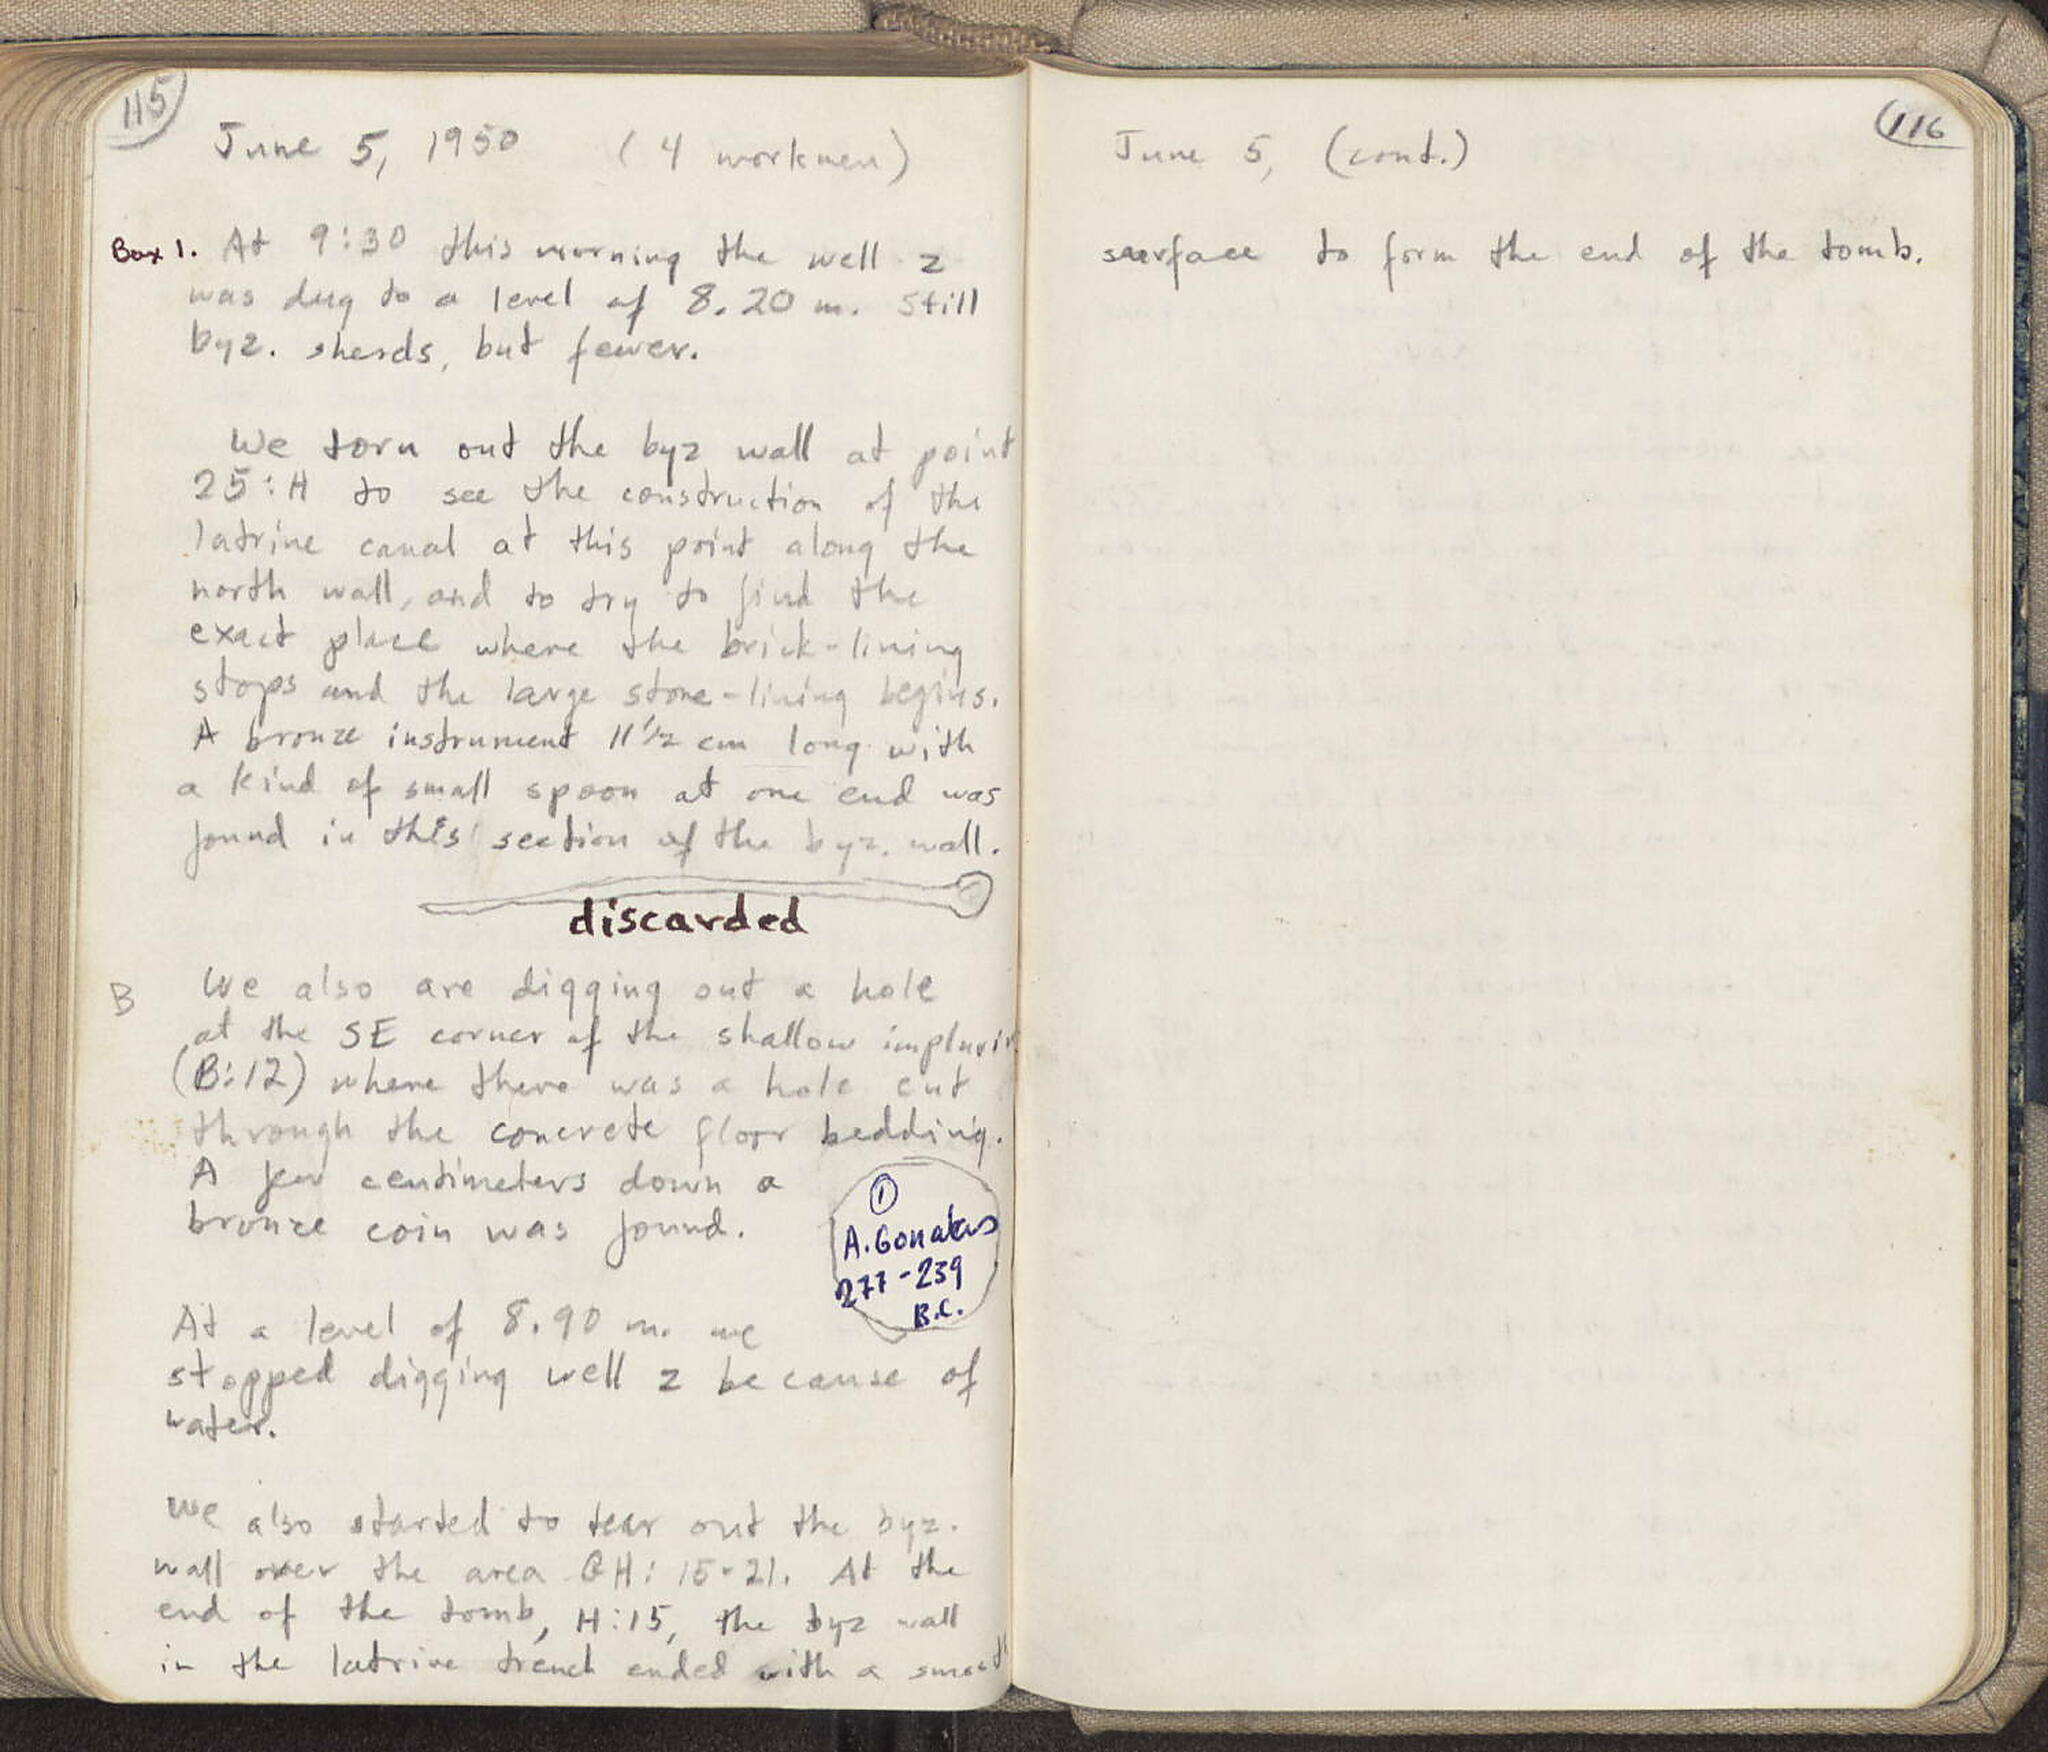 115
June 5, 1950 (4 workmen)
Box 1. At 9:30 this morning the well z
was dug to a level of 8.20 m. Still
byz. sherds, but fewer.
We torn out the byz wall at point
25:H to see the construction of the
latrine canal at this point along the
north wall, and to try to find the
exact place where the brick-lining
stops and the large stone-lining begins.
A bronze instrument 11 1/2 cm long with
a kind of small spoon at one end was
found in this section of the byz. wall.
discarded
B We also are digging out a hole
at the SE corner of the shallow impluvi
(B:12) where there was a hole cut
through the concrete floor bedding.
A few centimeters down a
bronze coin was found.
1
A. Gonatas
277-239
B.C.
At a level of 8.90 m. we
stopped digging well z because of
water.
We also started to tear out the byz.
wall over the area GH: 15-21. At the
end of the tomb, H:15, the byz wall
in the latrine trench ended with a smooth
116
June 5, (cont.)
surface to form the end of the tomb.